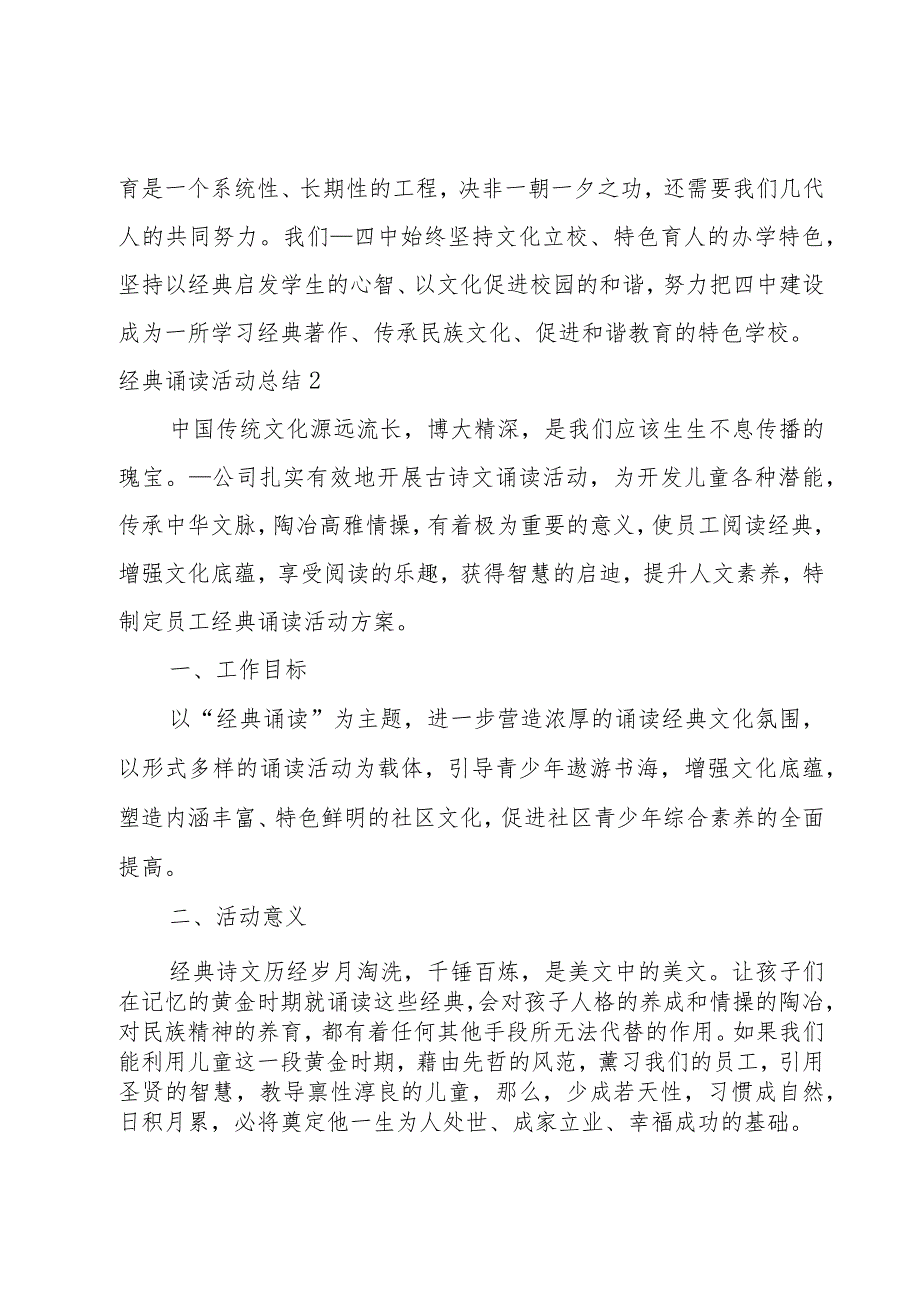 育是一个系统性、长期性的工程，决非一朝一夕之功，还需要我们几代
人的共同努力。我们—四中始终坚持文化立校、特色育人的办学特色，
坚持以经典启发学生的心智、以文化促进校园的和谐，努力把四中建设
成为一所学习经典著作、传承民族文化、促进和谐教育的特色学校。
经典诵读活动总结2
中国传统文化源远流长，博大精深，是我们应该生生不息传播的
瑰宝。—公司扎实有效地开展古诗文诵读活动，为开发儿童各种潜能，
传承中华文脉，陶冶高雅情操，有着极为重要的意义，使员工阅读经典，
增强文化底蕴，享受阅读的乐趣，获得智慧的启迪，提升人文素养，特
制定员工经典诵读活动方案。
一、工作目标
以“经典诵读”为主题，进一步营造浓厚的诵读经典文化氛围，
以形式多样的诵读活动为载体，引导青少年遨游书海，增强文化底蕴，
塑造内涵丰富、特色鲜明的社区文化，促进社区青少年综合素养的全面
提高。
二、活动意义
经典诗文历经岁月淘洗，千锤百炼，是美文中的美文。让孩子们
在记忆的黄金时期就诵读这些经典，会对孩子人格的养成和情操的陶冶，
对民族精神的养育，都有着任何其他手段所无法代替的作用。如果我们
能利用儿童这一段黄金时期，藉由先哲的风范，薰习我们的员工，引用
圣贤的智慧，教导禀性淳良的儿童，那么，少成若天性，习惯成自然，
日积月累，必将奠定他一生为人处世、成家立业、幸福成功的基础。